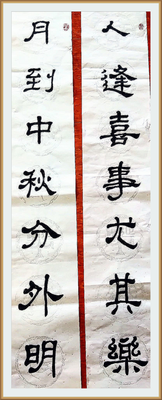 人逢喜事尤其樂
月到中秋分外明